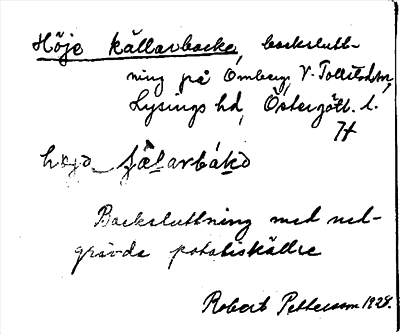 Höje källarbacke, backslutt-
ning på Omberg, V. Tollstad sn,
Lysings hd, Östergötl. l.
74
höjə ɕälarbákə
Backsluttning med ned-
grävda potatiskällre
Robert Pettersson 1928.